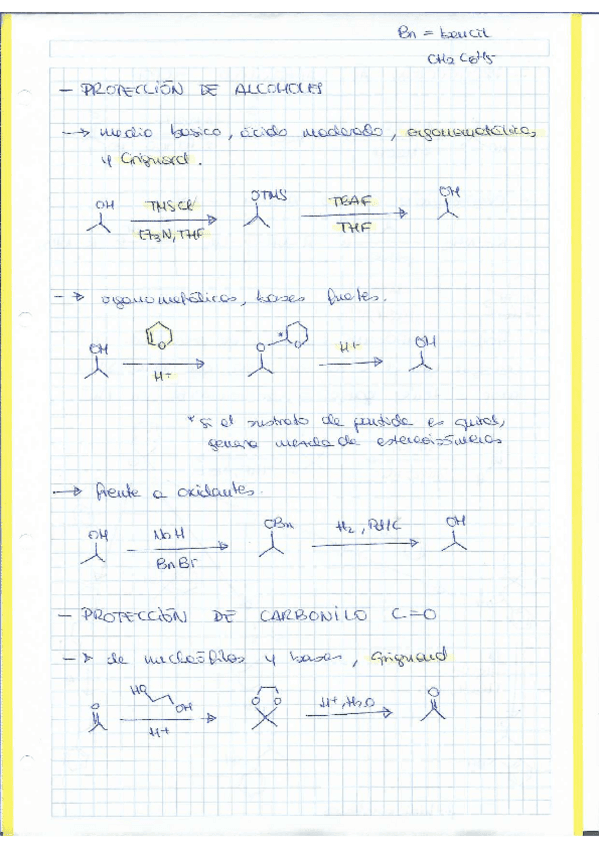 Bn = bencil
CH2 C6H5
- PROTECCIÓN DE ALCOHOLES
→ medio básico, ácido moderado, organometálicos,
y Grignard.
OH TMSCl OTMS TBAF OH
Et3N, THF THF
→ organometálicos, bases fuertes.
O
OH O * O H+ OH
H+
* si el sustrato de partida es quiral,
genera mezcla de estereoisómeros
→ frente a oxidantes.
OH NaH OBn H2, Pd/C OH
BnBr
- PROTECCIÓN DE CARBONILO C=O
→ de nucleófilos y bases, Grignard
O HO OH O O H+, H2O O
H+